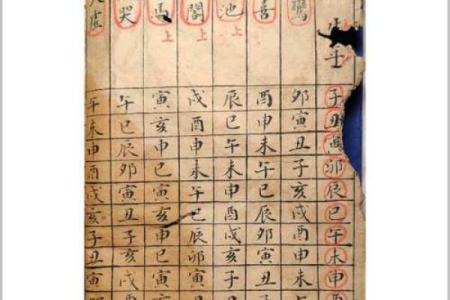 子丑寅卯辰巳午未申
鸞 卯寅丑子亥戌酉申未
喜 酉申未午巳辰卯寅丑
池 上 辰巳午未申酉戌亥子
閣 上 戌酉申未午巳辰卯寅
馬 上 寅亥申巳寅亥申巳寅
哭 午巳辰卯寅丑子亥戌
虛 午未申酉戌亥子丑寅